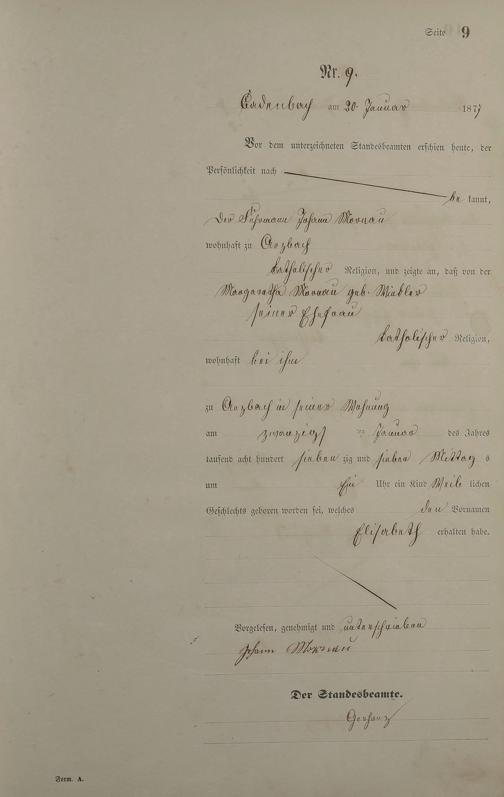 Seite 9
Nr. 9.
Cadenbach am 20. Januar 1877
Vor dem unterzeichneten Standesbeamten erschien heute, der
Persönlichkeit nach
be kannt,
der Fuhrmann Johann Mornau
wohnhaft zu Arzbach
katholischer Religion, und zeigte an, daß von der
Margaretha Mornau geb. Winkler
seiner Ehefrau
katholischer Religion,
wohnhaft bei ihm
zu Arzbach in seiner Wohnung
am zwanzigs ten Januar des Jahres
tausend acht hundert sieben zig und sieben Mittag s
um Uhr ein Kind Weib lichen
Geschlechts geboren worden sei, welches den Vornamen
Elisabeth erhalten habe.
Vorgelesen, genehmigt und unterschrieben
Johann Mornau
Der Standesbeamte.
Form. A.